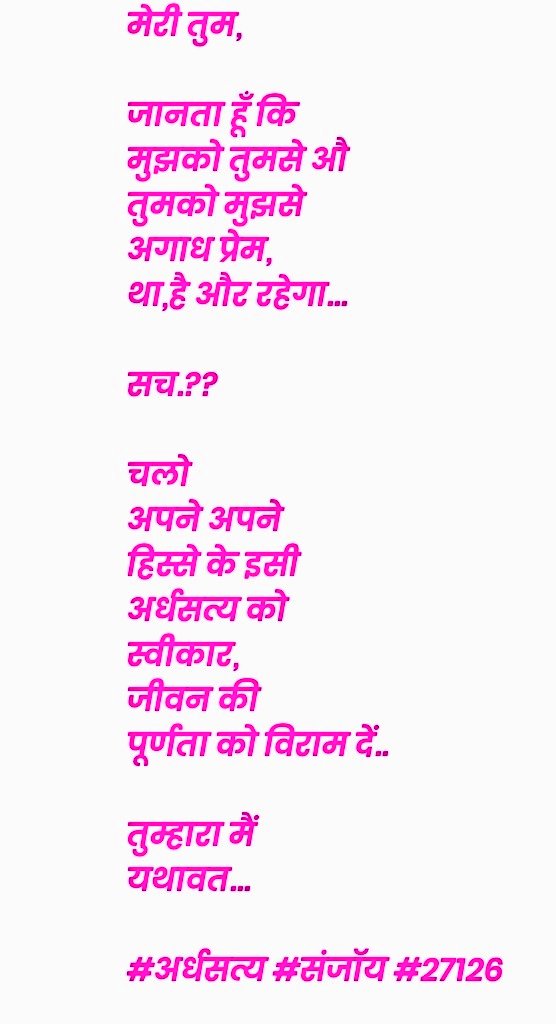 मेरी तुम,
जानता हूँ कि
मुझको तुमसे औ
तुमको मुझसे
अगाध प्रेम,
था,है और रहेगा...
सच.??
चलो
अपने अपने
हिस्से के इसी
अर्धसत्य को
स्वीकार,
जीवन की
पूर्णता को विराम दें..
तुम्हारा मैं
यथावत...
#अर्धसत्य #संजॉय #27126